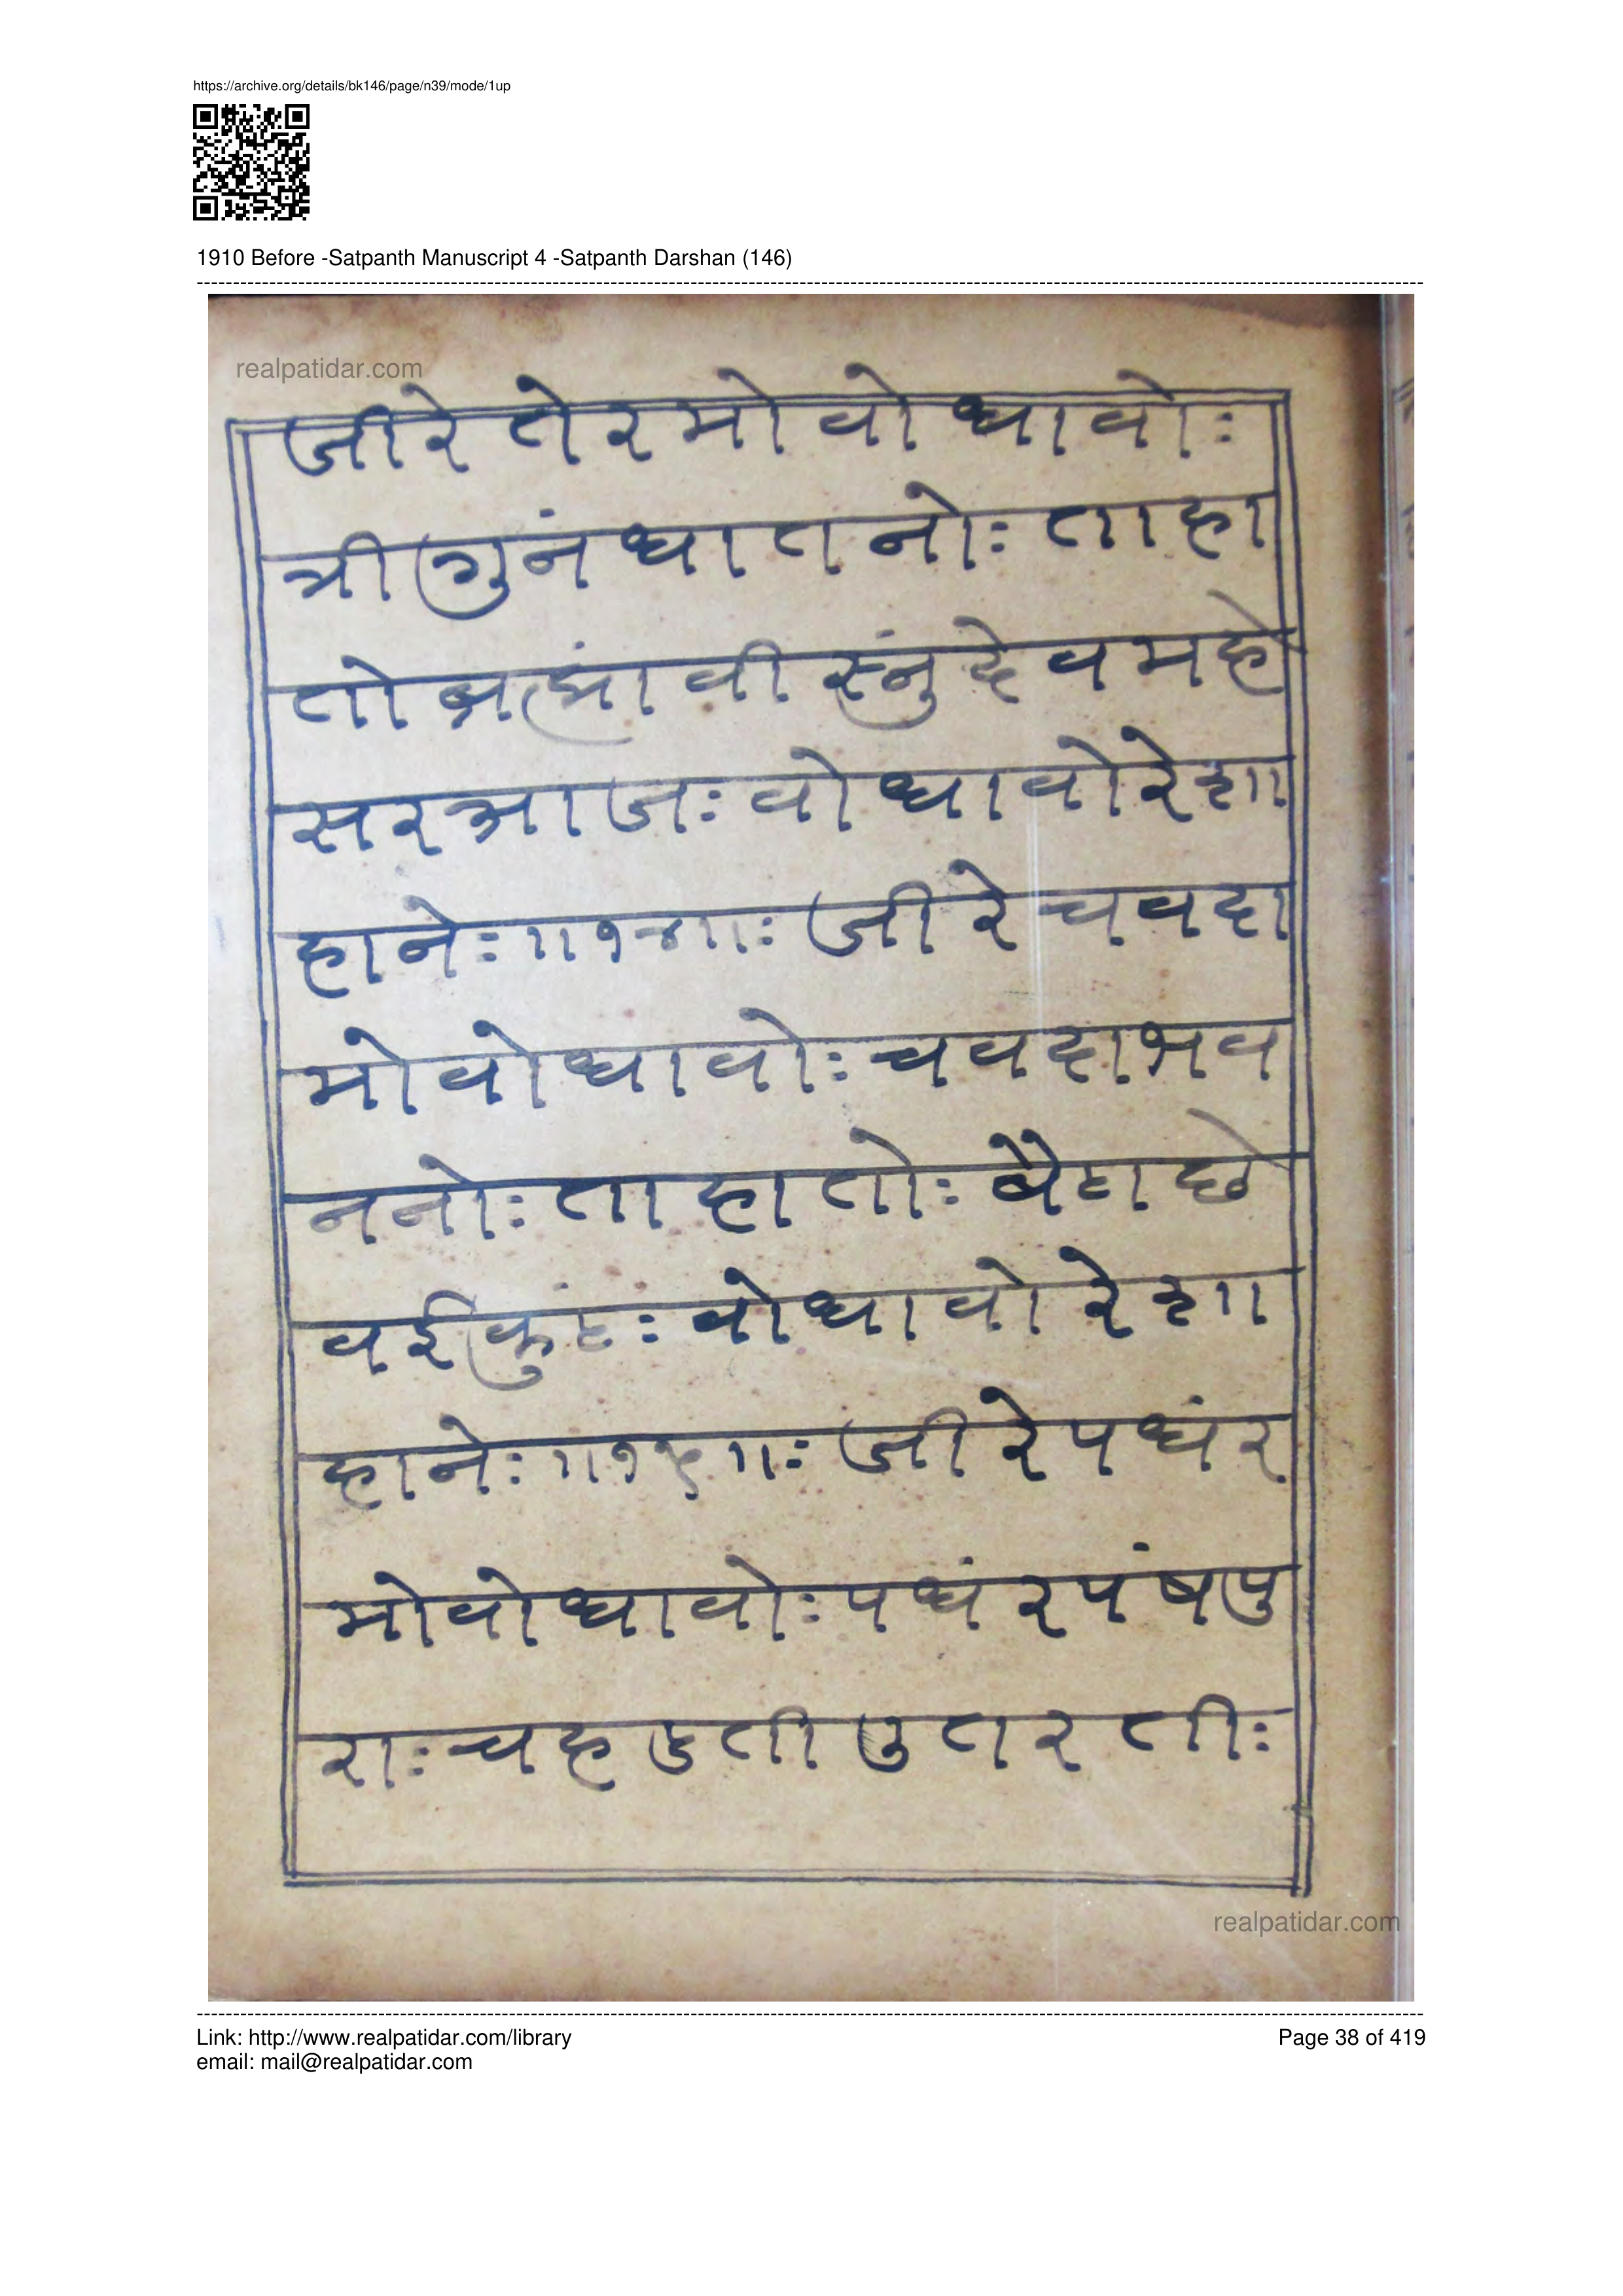 https://archive.org/details/bk146/page/n39/mode/1up
1910 Before -Satpanth Manuscript 4 -Satpanth Darshan (146)
realpatidar.com
जीरे तेरमो वो धावोः
त्री गुनं धातनोः ताहा
तो ब्रह्मां वी स्नुं देव महे
सर आजः वो धावो रे शा
हानेः ॥१४॥ः जीरे चवदा
मो वो धावोः चवदा भव
ननोः ताहा तोः बैठा छे
वईकुंठः वो धावो रे शा
हानेः ॥१५॥ः जीरे पधंर
मो वो धावोः पधंर पंष पु
राः चहडती उतरतीः
realpatidar.com
Link: http://www.realpatidar.com/library
email: mail@realpatidar.com
Page 38 of 419